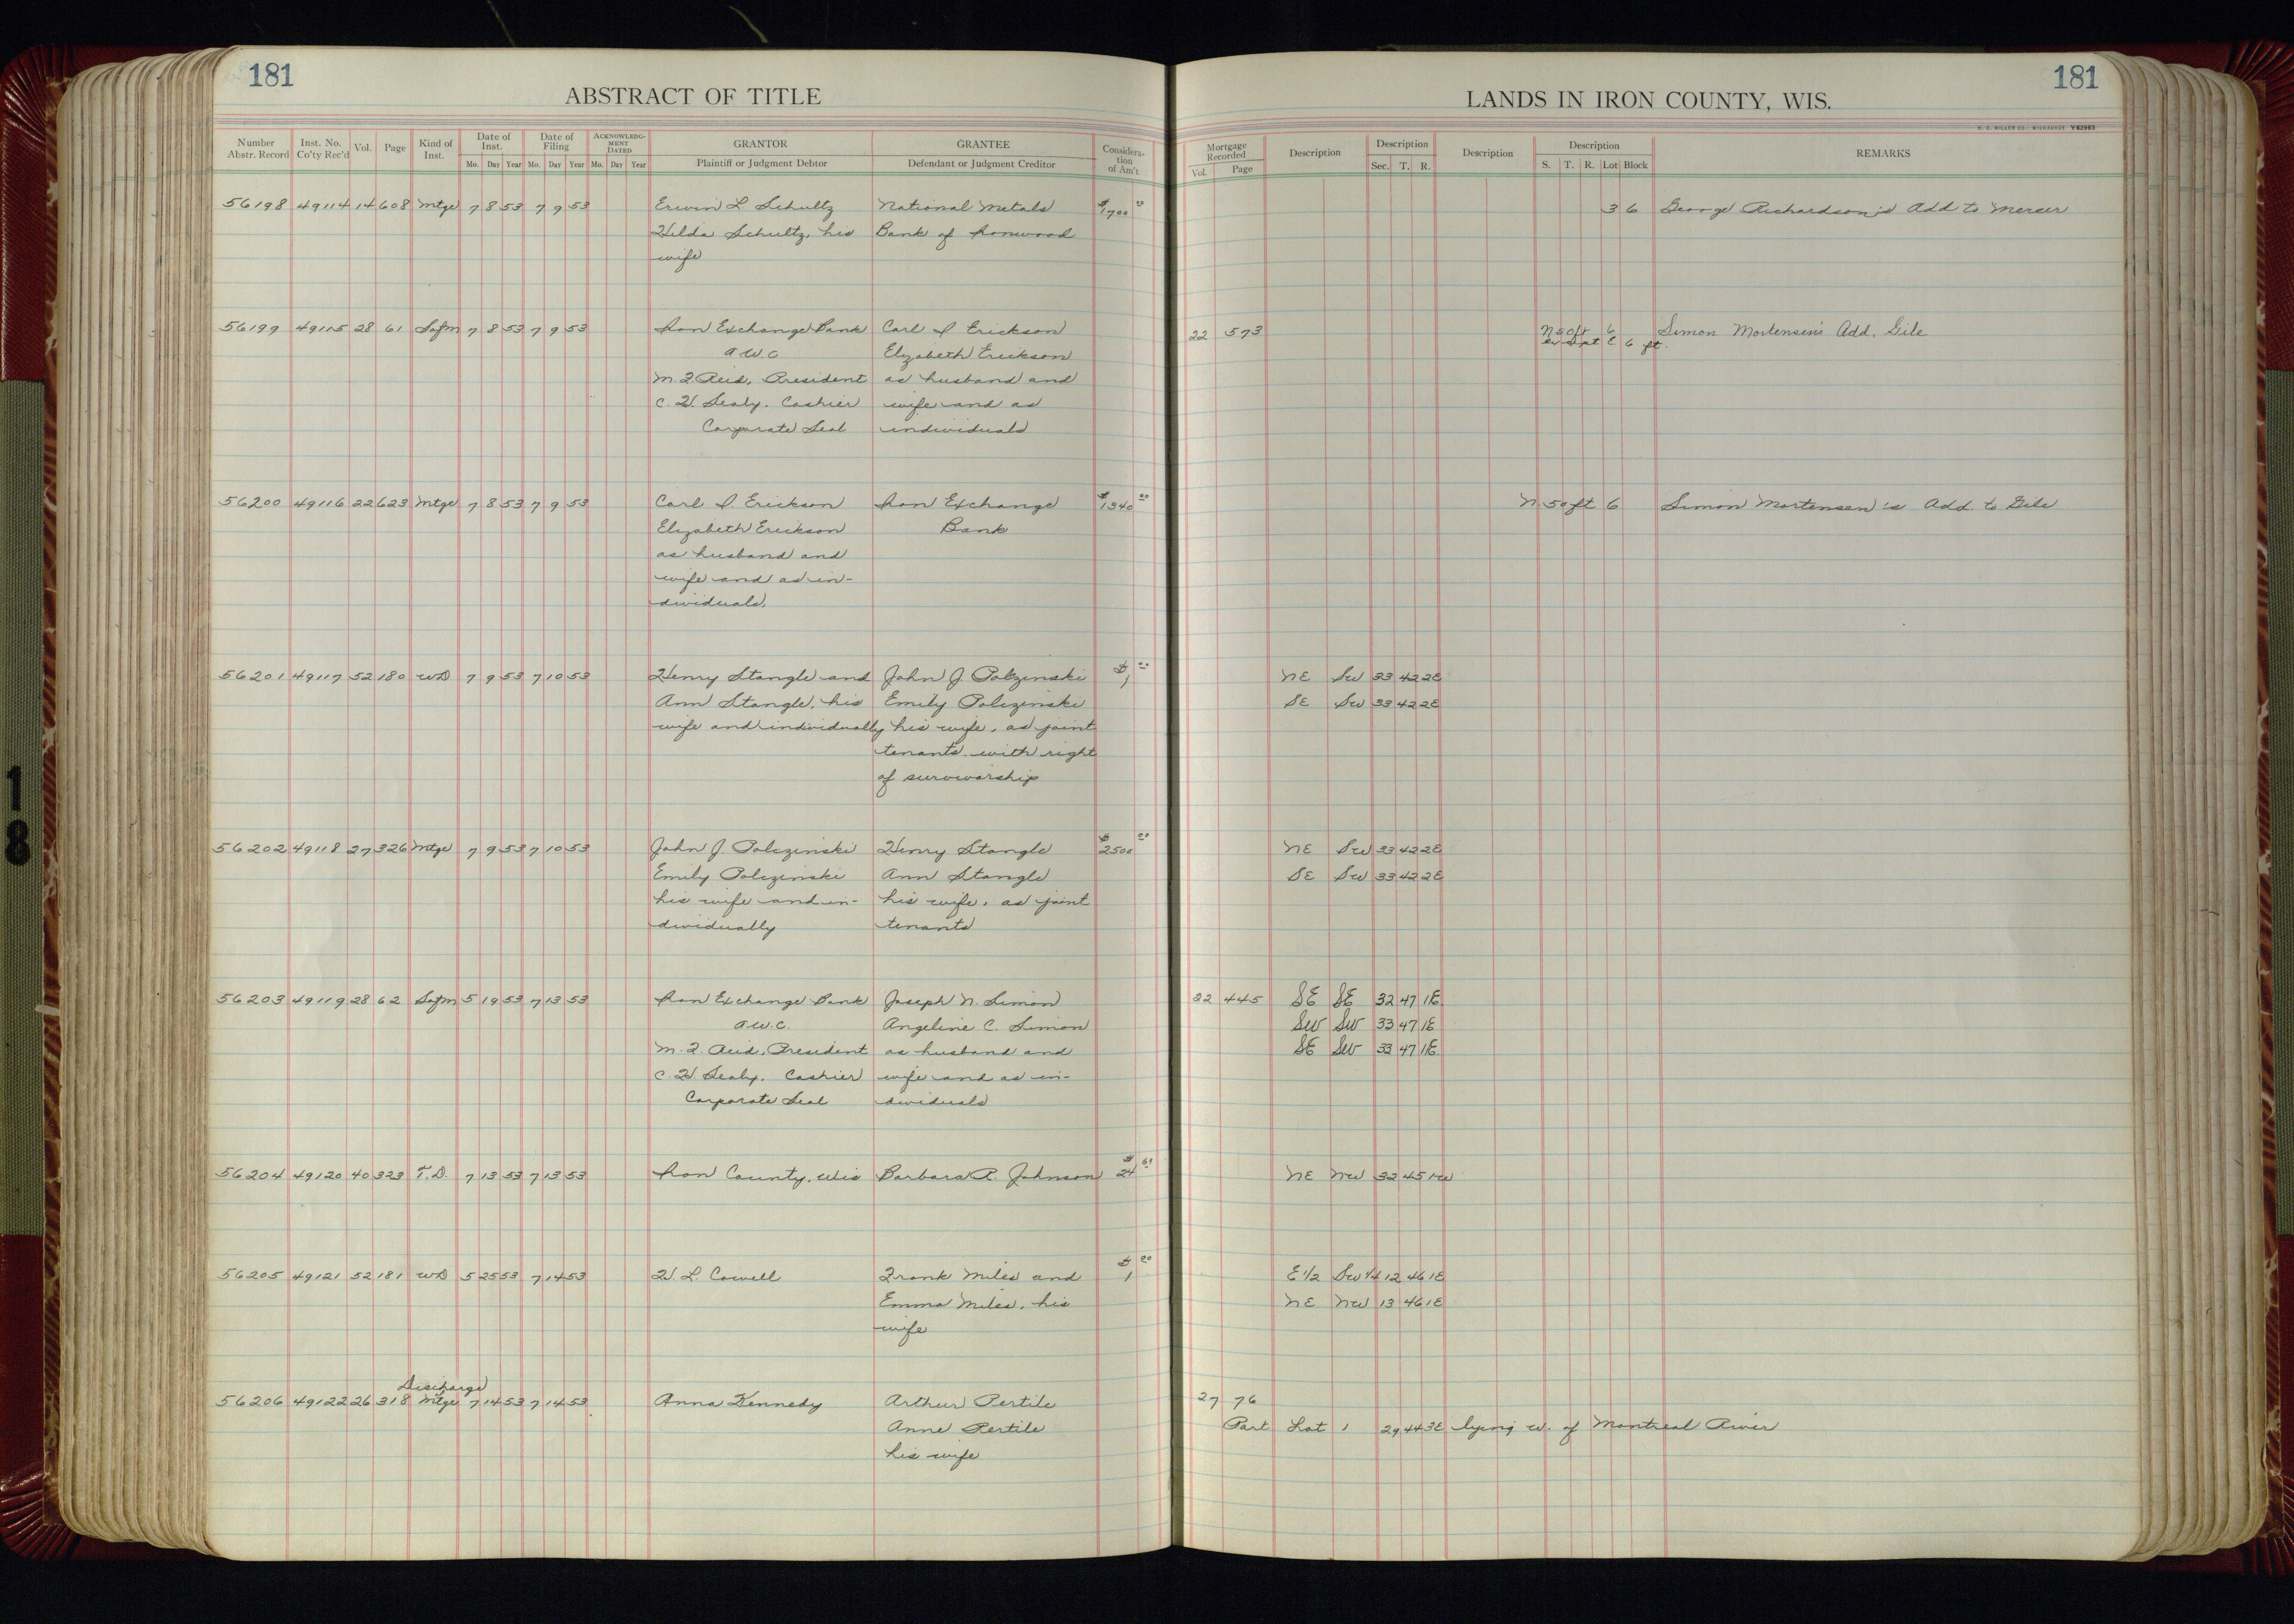 181
ABSTRACT OF TITLE
Number Abstr. Record Inst. No. Co'ty Rec'd Vol. Page Kind of Inst. Date of Inst. Mo. Day Year Date of Filing Mo. Day Year ACKNOWLEDGMENT DATED Mo. Day Year GRANTOR Plaintiff or Judgment Debtor GRANTEE Defendant or Judgment Creditor Consideration of Am't
56198 49114 14 608 Mtge 7 8 53 7 9 53 Erwin L. Schultz National Metals $1700
Hilda Schultz, his Bank of Ironwood
wife
56199 49115 28 61 Safm 7 8 53 7 9 53 Iron Exchange Bank Carl I Erickson
a W.C Elizabeth Erickson
M. J Reid, President as husband and
C. H. Sealy. Cashier wife and as
Corporate Seal individuals
56200 49116 22 623 Mtge 7 8 53 7 9 53 Carl I. Erickson Iron Exchange $1340 00
Elizabeth Erickson Bank
as husband and
wife and as in-
dividuals.
56201 49117 52 180 WD 7 9 53 7 10 53 Henry Stangle and John J Polczinski $1 00
Ann Stangle, his Emily Polczinski
wife and individually his wife, as joint
tenants with right
of survivorship
56202 49118 27 326 Mtge 7 9 53 7 10 53 John J. Polczinski Henry Stangle $2500 00
Emily Polczinski Ann Stangle
his wife and in- his wife, as joint
dividually tenants
56203 49119 28 62 Safm 5 19 53 7 13 53 Iron Exchange Bank Joseph N. Simon
a W.C. Angeline C. Simon
M. J. Reid, President as husband and
C. H. Sealy. Cashier wife and as in-
Corporate Seal dividuals
56204 49120 40 323 T.D. 7 13 53 7 13 53 Iron County, Wis Barbara R. Johnson $24
56205 49121 52 181 WD 5 25 53 7 14 53 H. L. Cowell Frank Miles and $1 00
Emma Miles, his
wife
Discharge
56206 49122 26 318 Mtge 7 14 53 7 14 53 Anna Kennedy Arthur Pertile
Anne Pertile
his wife
181
LANDS IN IRON COUNTY, WIS.
H. C. MILLER CO., MILWAUKEE Y62963
Mortgage Recorded Vol. Page Description Description Sec. T. R. Description Description S. T. R. Lot Block REMARKS
3 6 George Richardson's Add to Mercer
22 573 N 50ft 6 Simon Mortensen's Add. Gile
except E 6 ft.
N. 50 ft 6 Simon Mortensen's Add. to Gile
NE SW 33 42 2E
SE SW 33 42 2E
NE SW 33 42 2E
SE SW 33 42 2E
22 445 SE SE 32 47 1E.
SW SW 33 47 1E
SE SW 33 47 1E.
NE NW 32 45 1W
E 1/2 SW 1/4 12 46 1E
NE NW 13 46 1E
27 76
Part Lot 1 29 44 3E lying W. of Montreal River
18